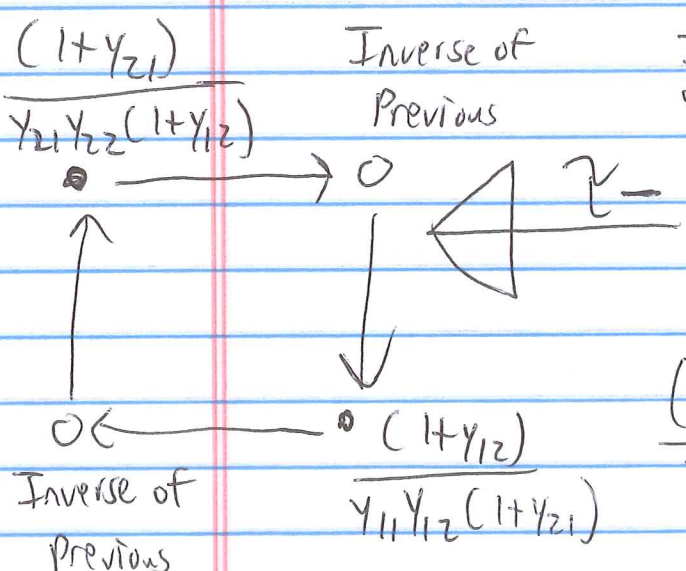 (1+y₂₁)
y₂₁y₂₂(1+y₁₂)
Inverse of
Previous
τ_
Inverse of
Previous
(1+y₁₂)
y₁₁y₁₂(1+y₂₁)
(